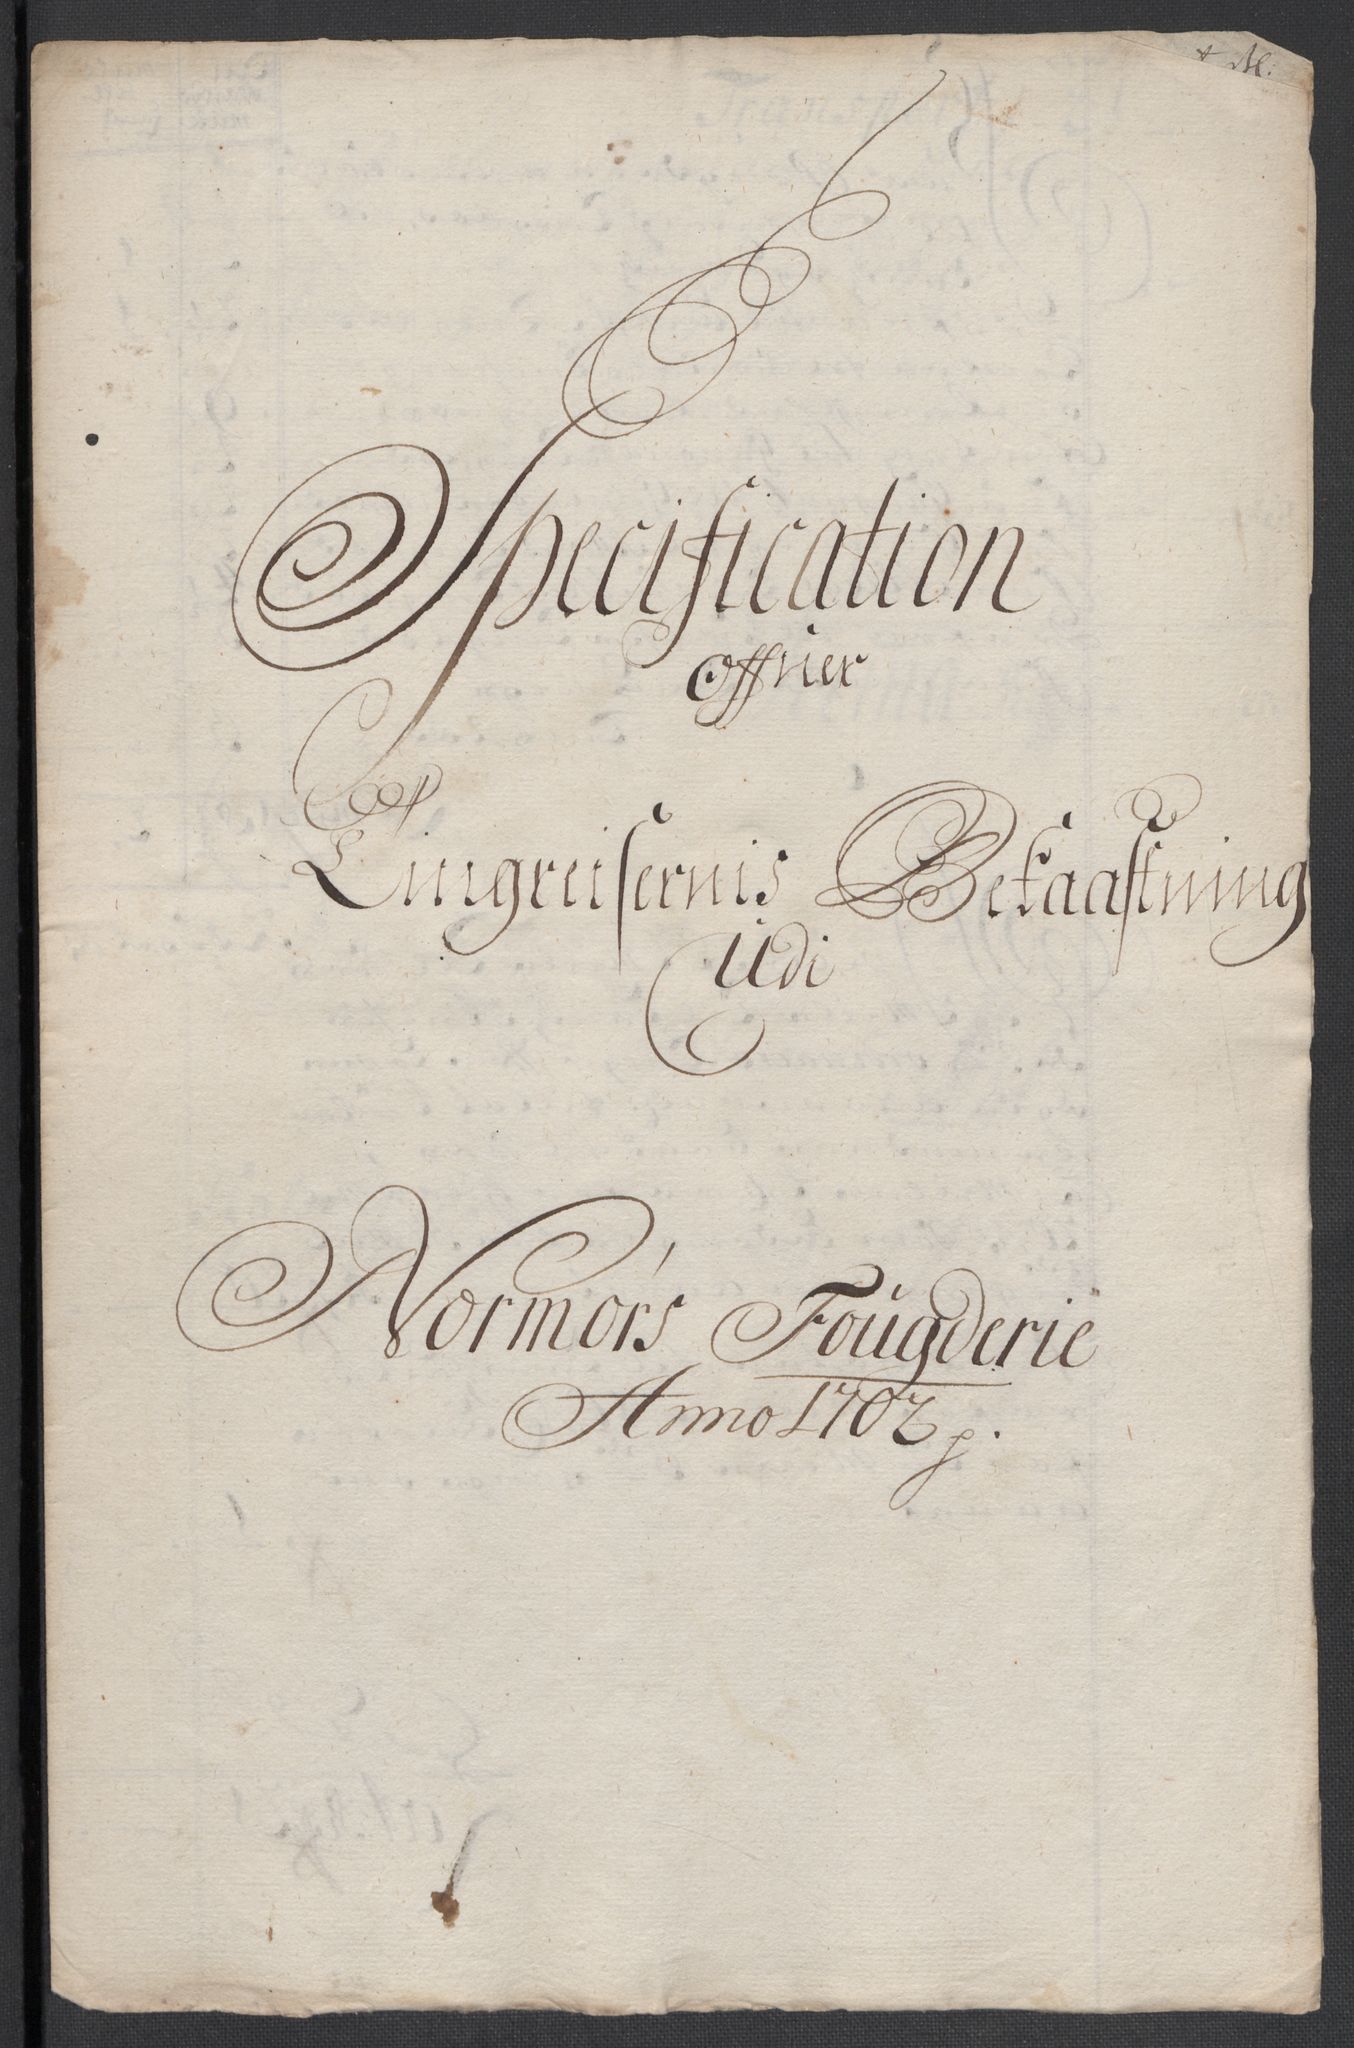 Specification
offuer
Tingreisernis Bekaastning
Udi
Normørs Fougderie
Anno 1702 p.